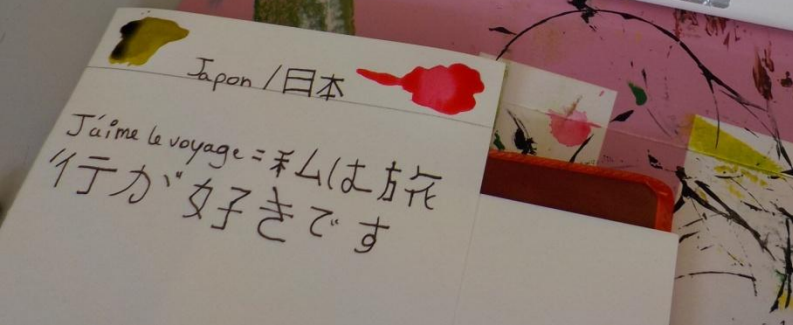 Japon / 日本
J'aime le voyage = 私は旅
行が好きです